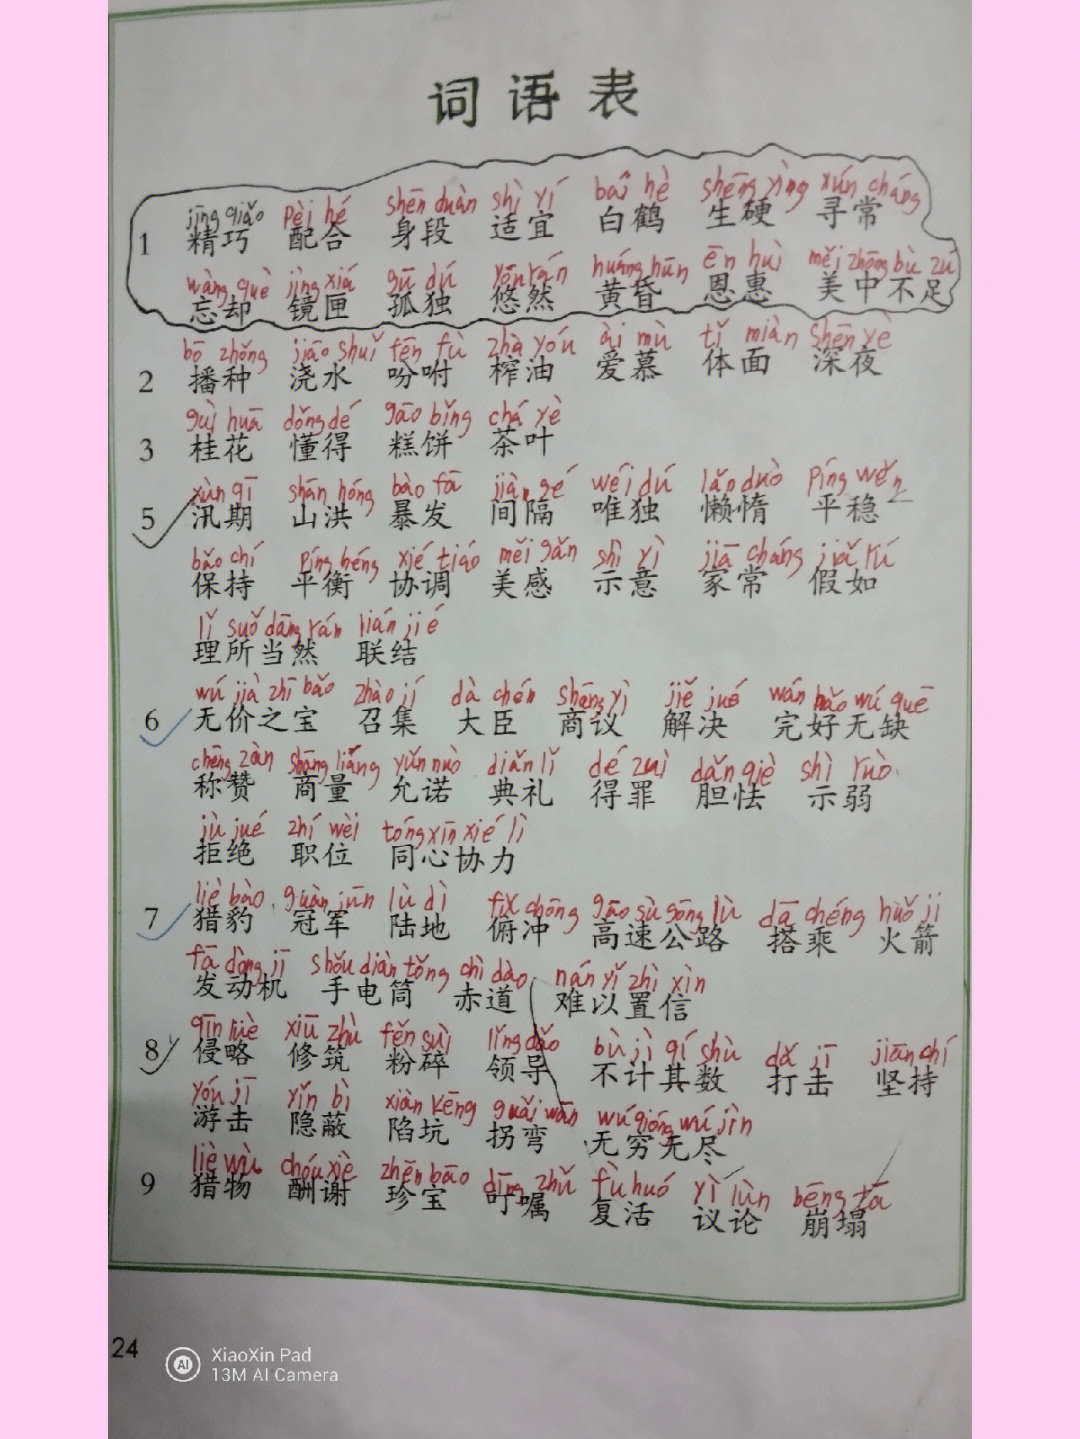 词语表
jīng qiǎo pèi hé shēn duàn shì yí bái hè shēng yìng xún cháng
1 精巧 配合 身段 适宜 白鹤 生硬 寻常
wàng què jìng xiá gū dú yōu rán huáng hūn ēn huì měi zhōng bù zú
忘却 镜匣 孤独 悠然 黄昏 恩惠 美中不足
bō zhǒng jiāo shuǐ fēn fù zhà yóu ài mù tǐ miàn shēn yè
2 播种 浇水 吩咐 榨油 爱慕 体面 深夜
guì huā dǒng dé gāo bǐng chá yè
3 桂花 懂得 糕饼 茶叶
xùn qī shān hóng bào fā jiàn gé wéi dú lǎn duò píng wěn
5 汛期 山洪 暴发 间隔 唯独 懒惰 平稳
bǎo chí píng héng xié tiáo měi gǎn shì yì jiā cháng jiǎ rú
保持 平衡 协调 美感 示意 家常 假如
lǐ suǒ dāng rán lián jié
理所当然 联结
wú jià zhī bǎo zhào jí dà chén shāng yì jiě jué wán hǎo wú quē
6 无价之宝 召集 大臣 商议 解决 完好无缺
chēng zàn shāng liáng yǔn nuò diǎn lǐ dé zuì dǎn qiè shì ruò
称赞 商量 允诺 典礼 得罪 胆怯 示弱
jù jué zhí wèi tóng xīn xié lì
拒绝 职位 同心协力
liè bào guàn jūn lù dì fǔ chōng gāo sù gōng lù dā chéng huǒ jì
7 猎豹 冠军 陆地 俯冲 高速公路 搭乘 火箭
fā dòng jī shǒu diàn tǒng chì dào nán yǐ zhì xìn
发动机 手电筒 赤道 难以置信
qīn lüè xiū zhù fěn suì lǐng dǎo bù jì qí shù dǎ jī jiān chí
8 侵略 修筑 粉碎 领导 不计其数 打击 坚持
yóu jī yǐn bì xiàn kēng guǎi wān wú qióng wú jìn
游击 隐蔽 陷坑 拐弯 无穷无尽
liè wù chóu xiè zhēn bǎo dīng zhǔ fù huó yì lùn bēng tā
9 猎物 酬谢 珍宝 叮嘱 复活 议论 崩塌
24
AI XiaoXin Pad
13M AI Camera